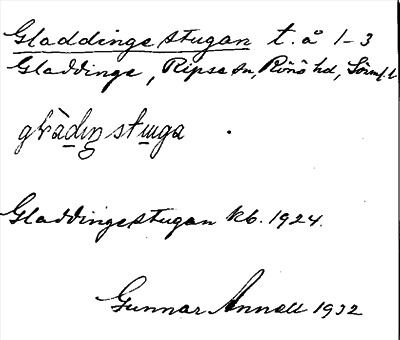 Gladdingestugan t. å 1-3
Gladdinge, Ripsa sn, Rönö hd, Sörml.
stuga
Gladdingestugan kb. 1924.
Gunnar Annell 1932